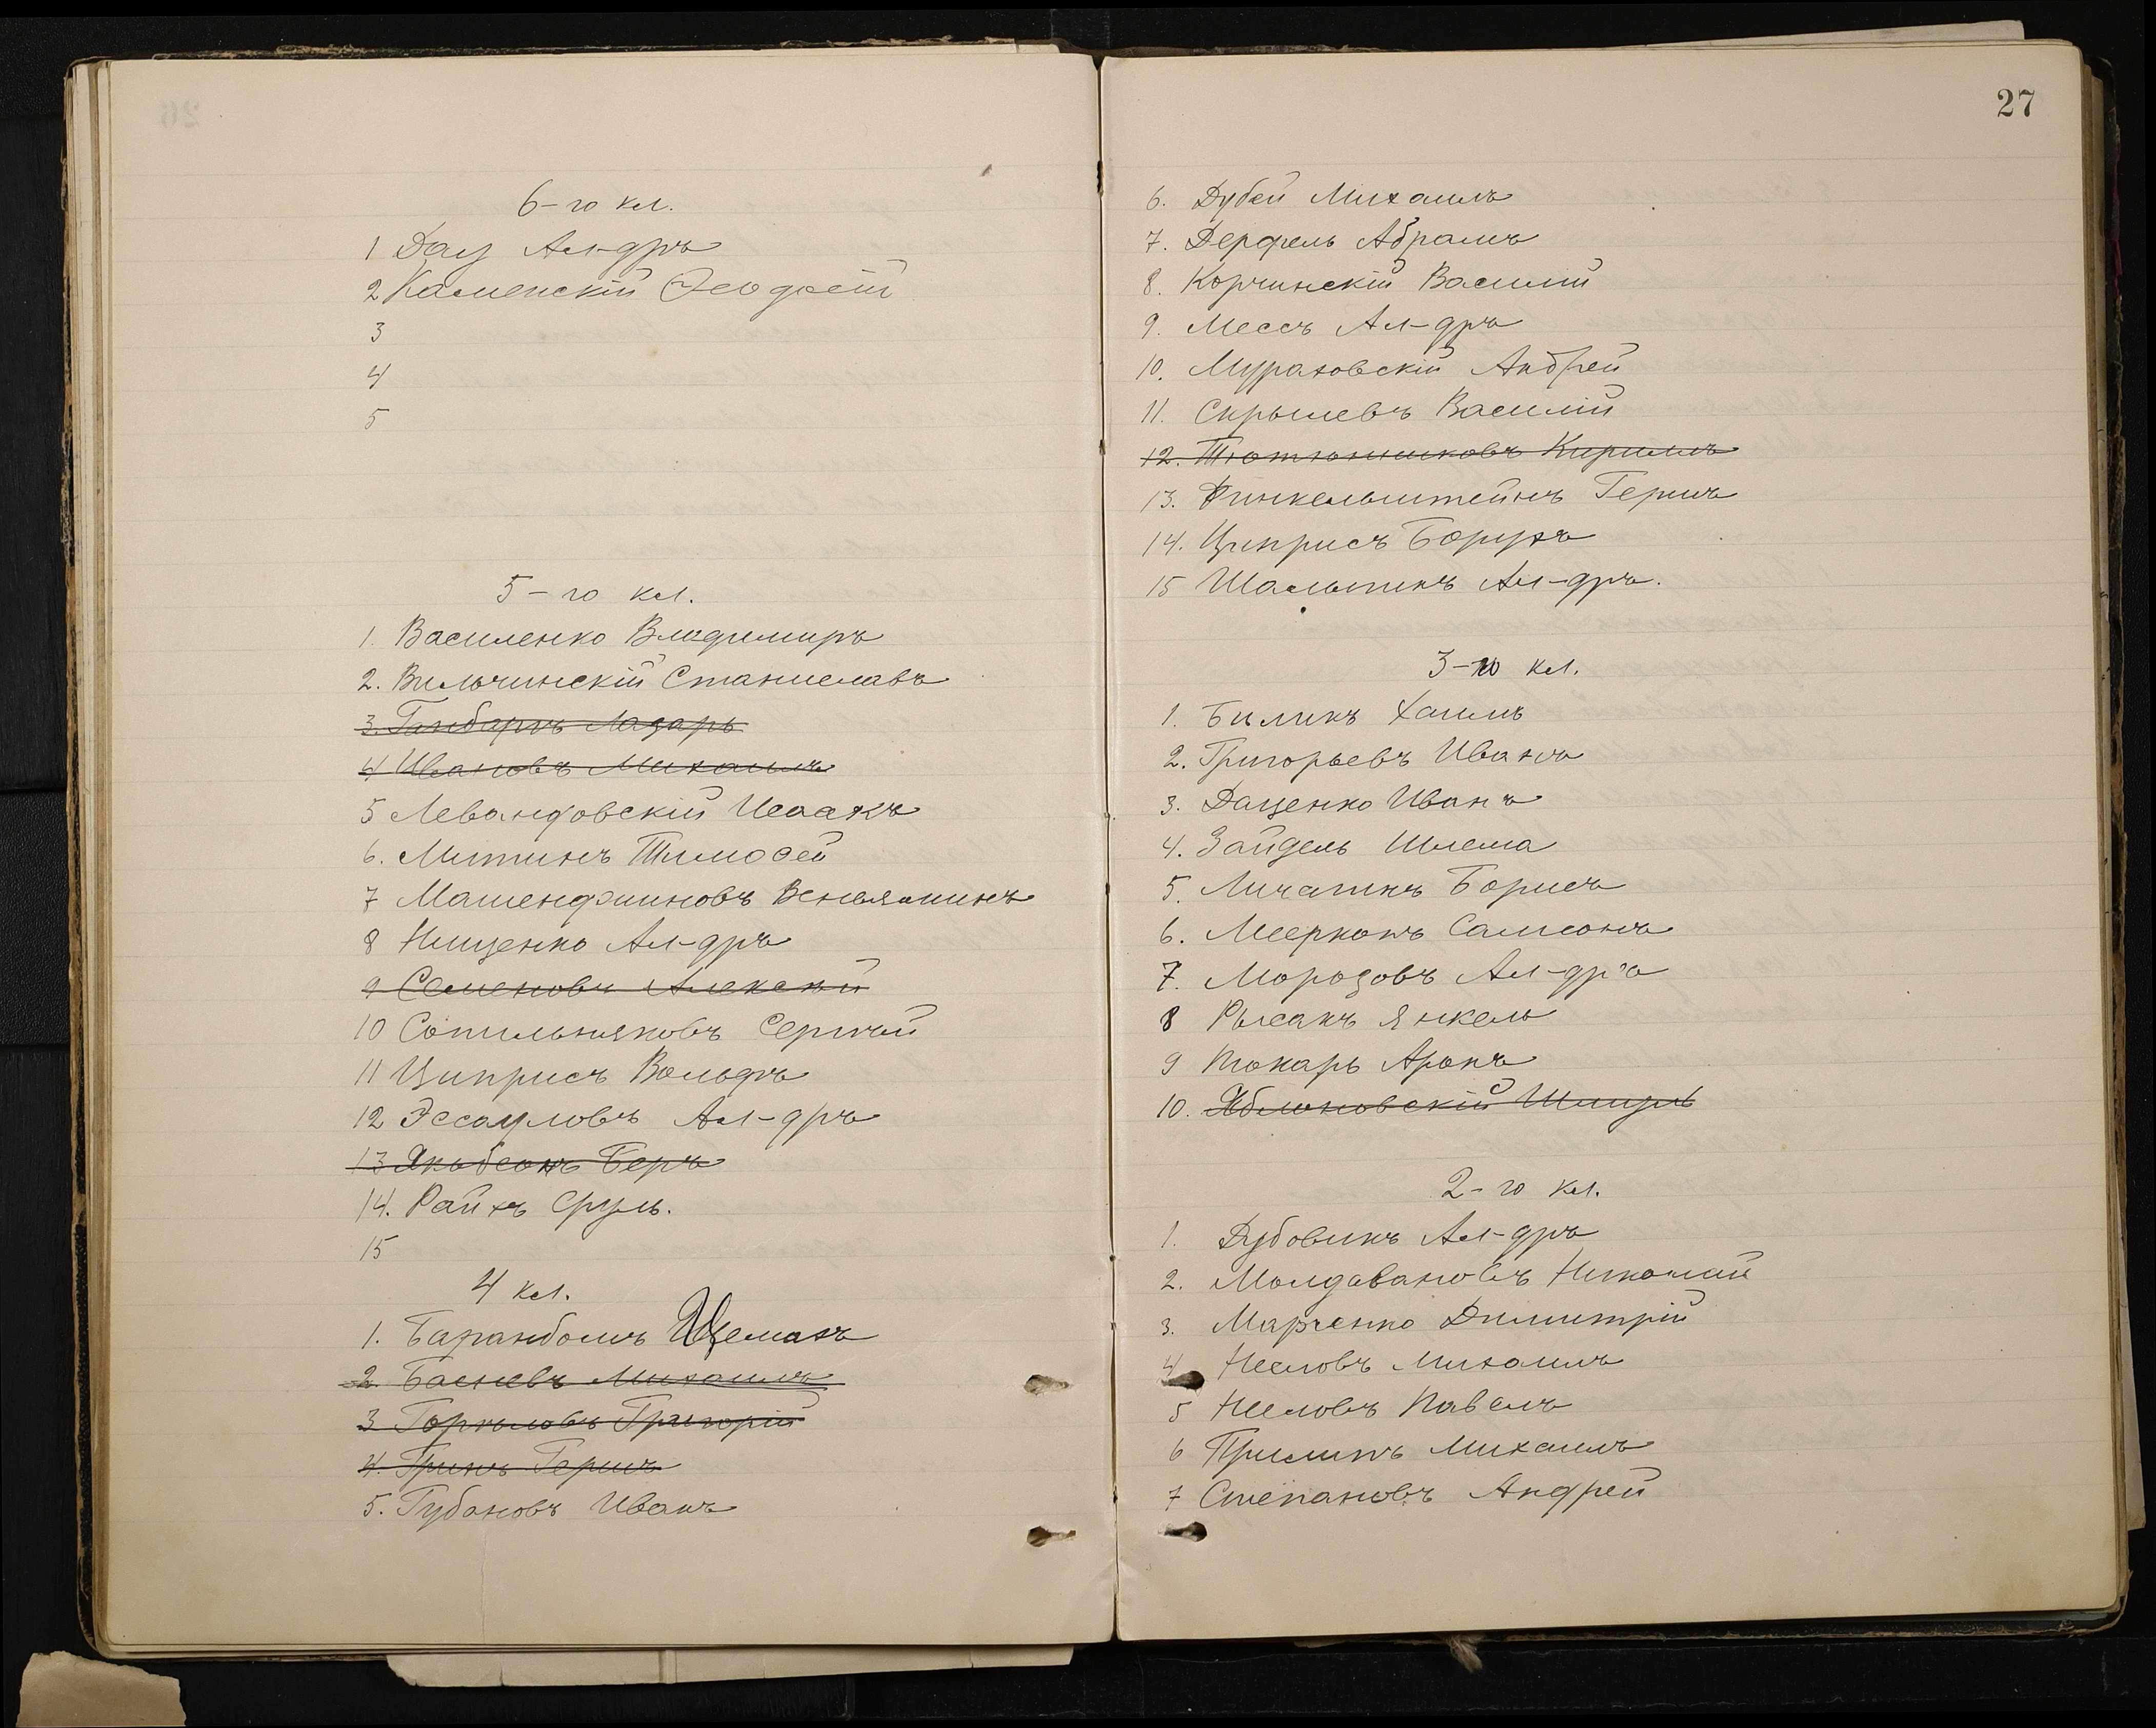 6-го кл.
1 Дац Ал-дръ
2 Каменскій Ѳеодосій
3
4
5
5-го кл.
1. Василенко Владимиръ
2. Вильчинскій Станиславъ
3. Гинбаргъ Лазарь
4 Ивановъ Михаилъ
5 Левандовскій Исаакъ
6. Митинъ Тимоѳей
7 Машенджиновъ Веньяминъ
8 Нищенко Ал-дръ
9 Семеновъ Алексѣй
10 Сопильняковъ Сергѣй
11 Циприсъ Вольфъ
12 Эссауловъ Ал-дръ
13 Якобсонъ Беръ
14. Райхъ Сруль.
15
4 кл.
1. Баранбомъ Цемахъ
2. Басневъ Михаилъ
3 Горчиловъ Григорій
4. Гринъ Гершъ
5. Губановъ Иванъ
27
6. Дубей Михаилъ
7. Дерфель Абрамъ
8. Корчинскій Василій
9. Мессъ Ал-дръ
10. Мураховскій Андрей
11. Скрылевъ Василій
12. Тютюнниковъ Кириллъ
13. Финкельштейнъ Гершъ
14. Циприсъ Борухъ
15 Шалыгинъ Ал-дръ.
3-го кл.
1. Биликъ Хаимъ
2. Григорьевъ Иванъ
3. Даценко Иванъ
4. Зайдель Шлема
5. Личагинъ Борисъ
6. Мееркопъ Самсонъ
7. Морозовъ Ал-дръ
8 Рысакъ Янкель
9 Токарь Аронъ
10. Яблоновскій Шмуль
2-го кл.
1. Дубовикъ Ал-дръ
2. Молдавановъ Николай
3. Марченко Димитрій
4 Несловъ Михаилъ
5 Несловъ Павелъ
6 Прилипъ Михаилъ
7 Степановъ Андрей